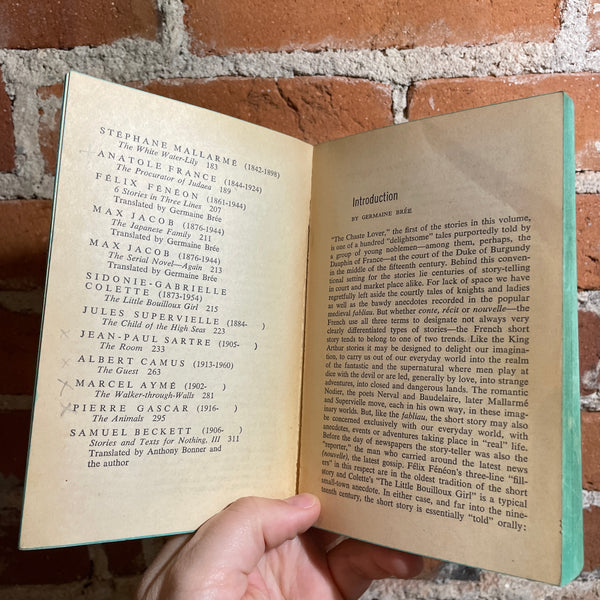 STÉPHANE MALLARMÉ (1842-1898)
The White Water-Lily 183
ANATOLE FRANCE (1844-1924)
The Procurator of Judaea 189
FÉLIX FÉNÉON (1861-1944)
6 Stories in Three Lines 207
Translated by Germaine Brée
MAX JACOB (1876-1944)
The Japanese Family 211
Translated by Germaine Brée
MAX JACOB (1876-1944)
The Serial Novel—Again 213
Translated by Germaine Brée
SIDONIE-GABRIELLE
COLETTE (1873-1954)
The Little Bouilloux Girl 215
JULES SUPERVIELLE (1884- )
The Child of the High Seas 223
JEAN-PAUL SARTRE (1905- )
The Room 233
ALBERT CAMUS (1913-1960)
The Guest 263
MARCEL AYMÉ (1902- )
The Walker-through-Walls 281
PIERRE GASCAR (1916- )
The Animals 295
SAMUEL BECKETT (1906- )
Stories and Texts for Nothing, III 311
Translated by Anthony Bonner and
the author
Introduction
BY GERMAINE BRÉE
"The Chaste Lover," the first of the stories in this volume,
is one of a hundred "delightsome" tales purportedly told by
a group of young noblemen—among them, perhaps, the
Dauphin of France—at the court of the Duke of Burgundy
in the middle of the fifteenth century. Behind this conven-
tional setting for the stories lie centuries of story-telling
in court and market place alike. For lack of space we have
regretfully left aside the courtly tales of knights and ladies
as well as the bawdy anecdotes recorded in the popular
medieval fabliau. But whether conte, récit or nouvelle—the
French use all three terms to designate not always very
clearly differentiated types of stories—the French short
story tends to belong to one of two trends. Like the King
Arthur stories it may be designed to delight our imagina-
tion, to carry us out of our everyday world into the realm
of the fantastic and the supernatural where men play at
dice with the devil or are led, generally by love, into strange
adventures, into closed and dangerous lands. The romantic
Nodier, the poets Nerval and Baudelaire, later Mallarmé
and Supervielle move, each in his own way, in these imag-
inary worlds. But, like the fabliau, the short story may also
be concerned exclusively with our everyday world, with
anecdotes, events or adventures taking place in "real" life.
Before the day of newspapers the story-teller was also the
"reporter," the man who carried around the latest news
(nouvelle), the latest gossip. Félix Fénéon's three-line "fill-
ers" in this respect are in the oldest tradition of the short
story and Colette's "The Little Bouilloux Girl" is a typical
small-town anecdote. In either case, and far into the nine-
teenth century, the short story is essentially "told" orally: